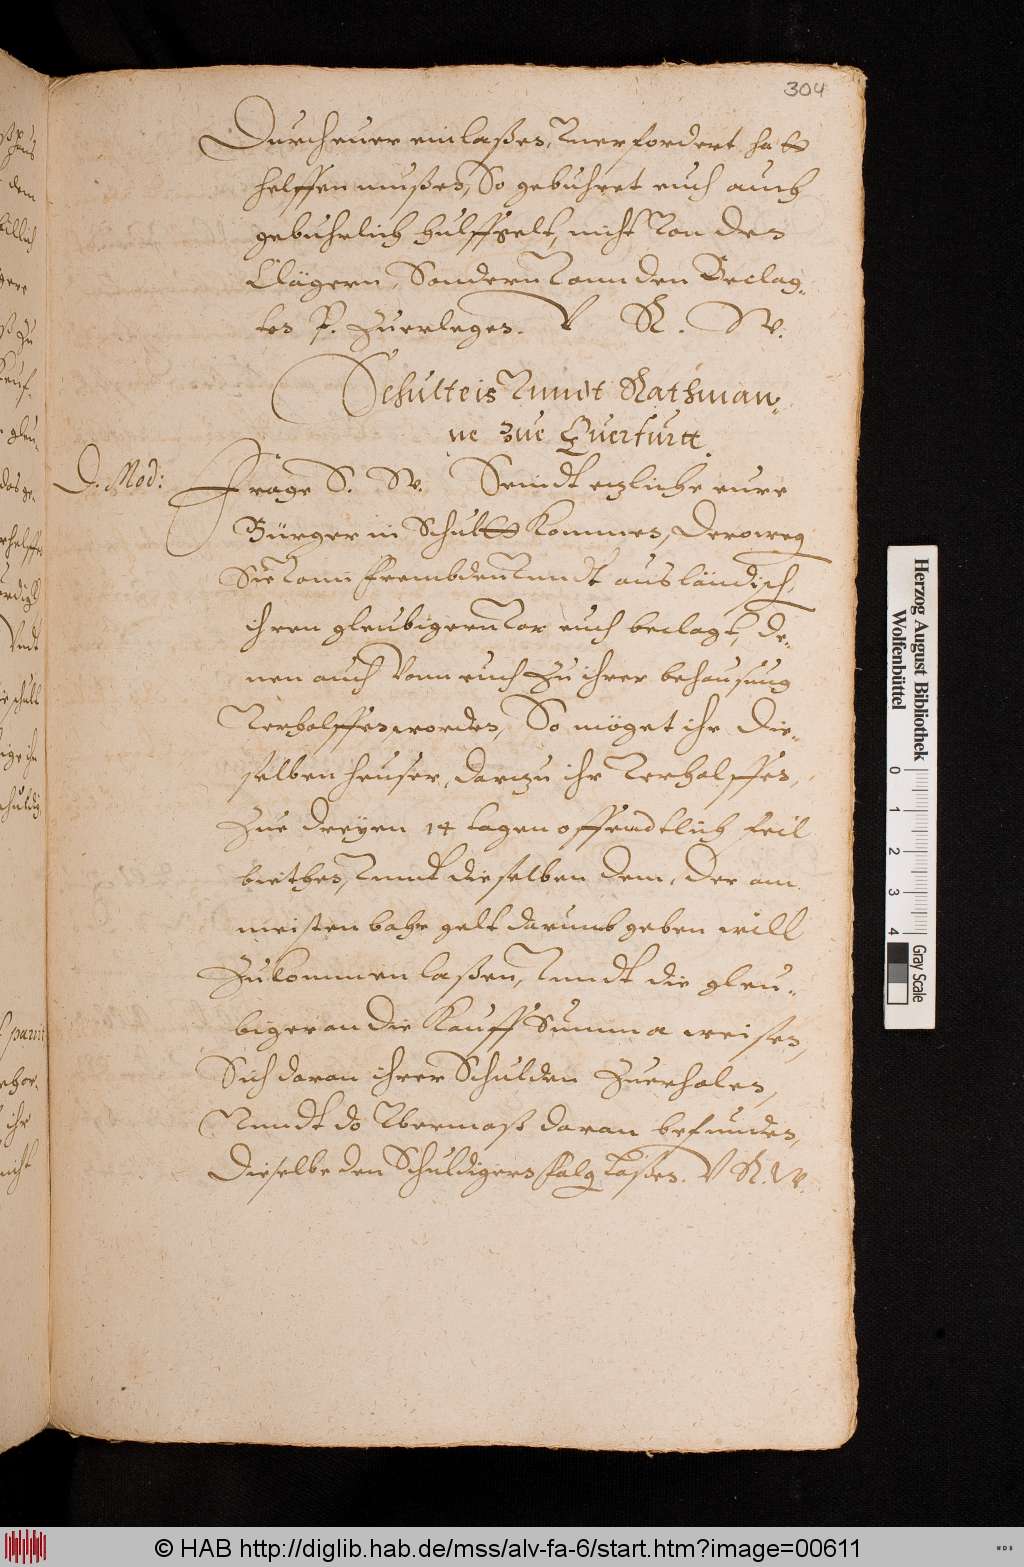 304
Durch euer einlaßen, Vnerfordert hatt
helffen mußen, So gebuhret euch auch
gebuhrlich hulffgelt, nicht Von den
Clägern, Sondern Vonn den Beclag-
ten P. Zuerlegen. V R. W.
Schulteis Vnndt Rathman-
ne zue Querfurtt.
D. Mod:
Frage S. W. Seindt etzliche eure
Bürger in Schultt kommen, Deroweg
Sie Vonn frembden Vnndt ausländisch
ihren gleubigern Vor euch beclagt, de-
nen auch Vonn euch Zu ihrer behausung
Verholffen worden, So möget ihr Die-
selben heuser, darzu ihr Verholffen,
Zue dreyen 14 tagen offendtlich feil
biethen, Vnndt dieselben dem, der am
meisten bahr gelt darumb geben will
Zukommen laßen, Vnndt die gleu-
biger an die Kauff Summa weisen,
Sich daran ihrer Schulden Zuerholen,
Vnndt do Vbermaß daran befunden,
Dieselbe den Schuldigern folg laßen. V R. W.
Herzog August Bibliothek
Wolfenbüttel
0 1 2 3 4
Gray Scale
© HAB http://diglib.hab.de/mss/alv-fa-6/start.htm?image=00611